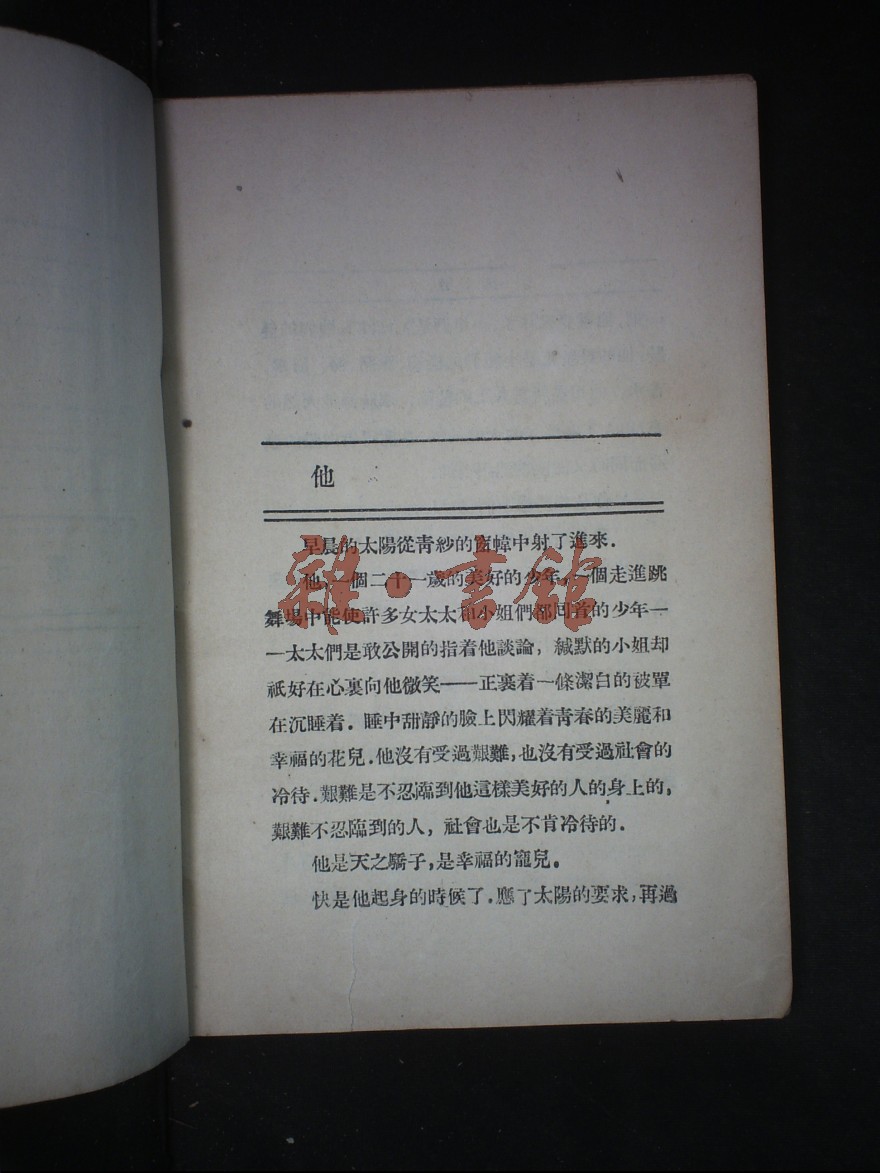 他
早晨的太陽從靑紗的窗幃中射了進來．
他，一個二十一歲的美好的少年，一個走進跳
舞場中能使許多女太太和小姐們都回首的少年—
—太太們是敢公開的指着他談論，緘默的小姐却
祇好在心裏向他微笑——正裹着一條潔白的被單
在沉睡着．睡中甜靜的臉上閃耀着靑春的美麗和
幸福的花兒．他沒有受過艱難，也沒有受過社會的
冷待．艱難是不忍臨到他這樣美好的人的身上的，
艱難不忍臨到的人，社會也是不肯冷待的．
他是天之驕子，是幸福的寵兒。
快是他起身的時候了．應了太陽的要求，再過
雜·書館